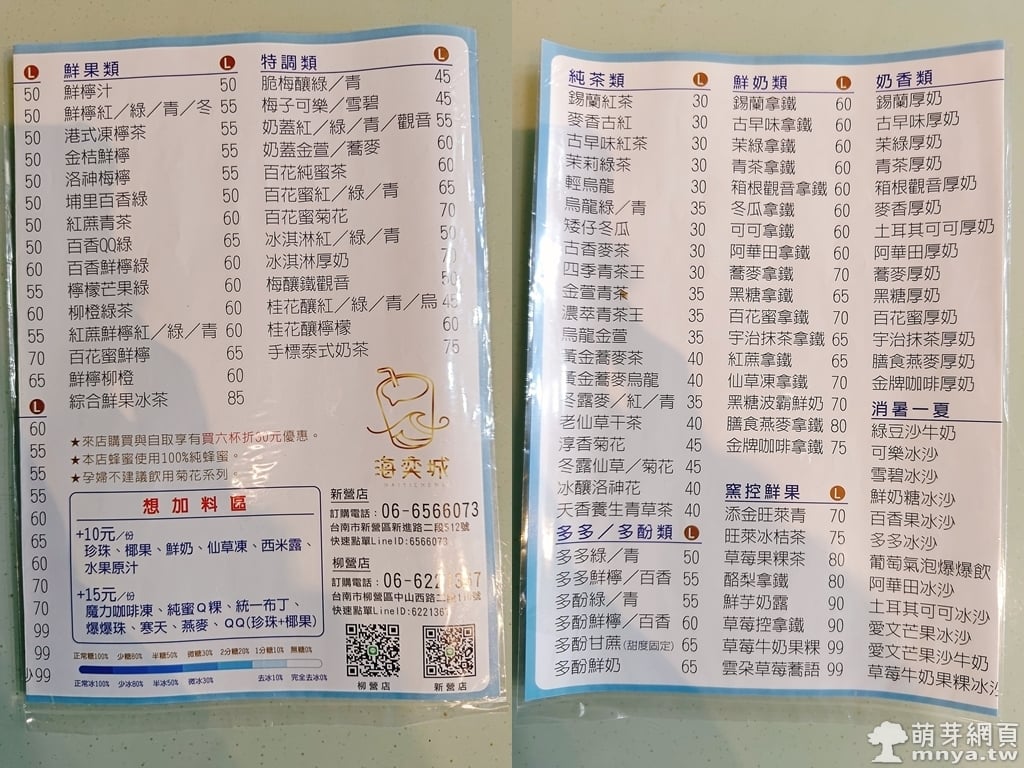 Ⓛ
50
50
50
50
50
50
50
50
60
55
60
55
70
65
Ⓛ
60
55
55
55
60
65
60
70
70
99
99
99
鮮果類 Ⓛ
鮮檸汁 50
鮮檸紅／綠／青／冬 55
港式凍檸茶 55
金桔鮮檸 55
洛神梅檸 55
埔里百香綠 50
紅蔗青茶 60
百香QQ綠 65
百香鮮檸綠 60
檸檬芒果綠 60
柳橙綠茶 60
紅蔗鮮檸紅／綠／青 60
百花蜜鮮檸 65
鮮檸柳橙 60
綜合鮮果冰茶 85
特調類 Ⓛ
脆梅釀綠／青 45
梅子可樂／雪碧 45
奶蓋紅／綠／青／觀音 55
奶蓋金萱／蕎麥 60
百花純蜜茶 60
百花蜜紅／綠／青 65
百花蜜菊花 70
冰淇淋紅／綠／青 50
冰淇淋厚奶 70
梅釀鐵觀音 50
桂花釀紅／綠／青／烏 45
桂花釀檸檬 60
手標泰式奶茶 75
海奕城
★來店購買與自取享有買六杯折30元優惠。
★本店蜂蜜使用100%純蜂蜜。
★孕婦不建議飲用菊花系列。
想加料區
+10元／份
珍珠、椰果、鮮奶、仙草凍、西米露、
水果原汁
+15元／份
魔力咖啡凍、純蜜Q粿、統一布丁、
爆爆珠、寒天、燕麥、QQ(珍珠+椰果)
正常糖100% 少糖80% 半糖50% 微糖30% 2分糖20% 1分糖10% 無糖0%
正常冰100% 少冰80% 半冰50% 微冰30% 去冰10% 完全去冰0%
新營店
訂購電話：06-6566073
台南市新營區新進路二段512號
快速點單LineID:6566073
柳營店
訂購電話：06-6221367
台南市柳營區中山西路二段110號
快速點單LineID:6221367
柳營店 新營店
純茶類 Ⓛ
錫蘭紅茶 30
麥香古紅 30
古早味紅茶 30
茉莉綠茶 30
輕烏龍 30
烏龍綠／青 35
矮仔冬瓜 30
古香麥茶 30
四季青茶王 30
金萱青茶 35
濃萃青茶王 35
烏龍金萱 35
黃金蕎麥茶 40
黃金蕎麥烏龍 40
冬露麥／紅／青 35
老仙草干茶 40
淳香菊花 45
冬露仙草／菊花 45
冰釀洛神花 40
天香養生青草茶 40
多多／多酚類 Ⓛ
多多綠／青 50
多多鮮檸／百香 55
多酚綠／青 55
多酚鮮檸／百香 60
多酚甘蔗(甜度固定) 65
多酚鮮奶 65
鮮奶類 Ⓛ
錫蘭拿鐵 60
古早味拿鐵 60
茉綠拿鐵 60
青茶拿鐵 60
箱根觀音拿鐵 60
冬瓜拿鐵 60
可可拿鐵 60
阿華田拿鐵 60
蕎麥拿鐵 70
黑糖拿鐵 65
百花蜜拿鐵 70
宇治抹茶拿鐵 65
紅蔗拿鐵 65
仙草凍拿鐵 70
黑糖波霸鮮奶 70
膳食燕麥拿鐵 80
金牌咖啡拿鐵 75
窯控鮮果 Ⓛ
添金旺萊青 70
旺萊冰桔茶 75
草莓果粿茶 80
酪梨拿鐵 80
鮮芋奶露 90
草莓控拿鐵 90
草莓牛奶果粿 99
雲朵草莓蕎語 99
奶香類
錫蘭厚奶
古早味厚奶
茉綠厚奶
青茶厚奶
箱根觀音厚奶
麥香厚奶
土耳其可可厚奶
阿華田厚奶
蕎麥厚奶
黑糖厚奶
百花厚奶
宇治抹茶厚奶
膳食燕麥厚奶
金牌咖啡厚奶
消暑一夏
綠豆沙牛奶
可樂冰沙
雪碧冰沙
鮮奶糖冰沙
百香果冰沙
多多冰沙
葡萄氣泡爆爆飲
阿華田冰沙
土耳其可可冰沙
愛文芒果冰沙
愛文芒果沙牛奶
草莓牛奶果粿冰沙
萌芽網頁
mnya.tw